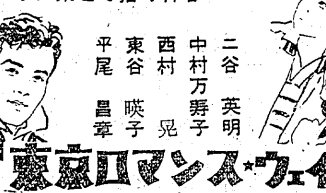 二谷英明
中村万寿子
西村晃
東谷暎子
平尾昌章
東京ロマンス・ウェイ